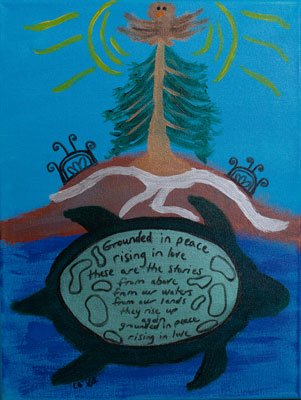 Grounded in peace
rising in love
these are the stories
from above
from our waters
from our lands
they rise up
again
grounded in peace
rising in love